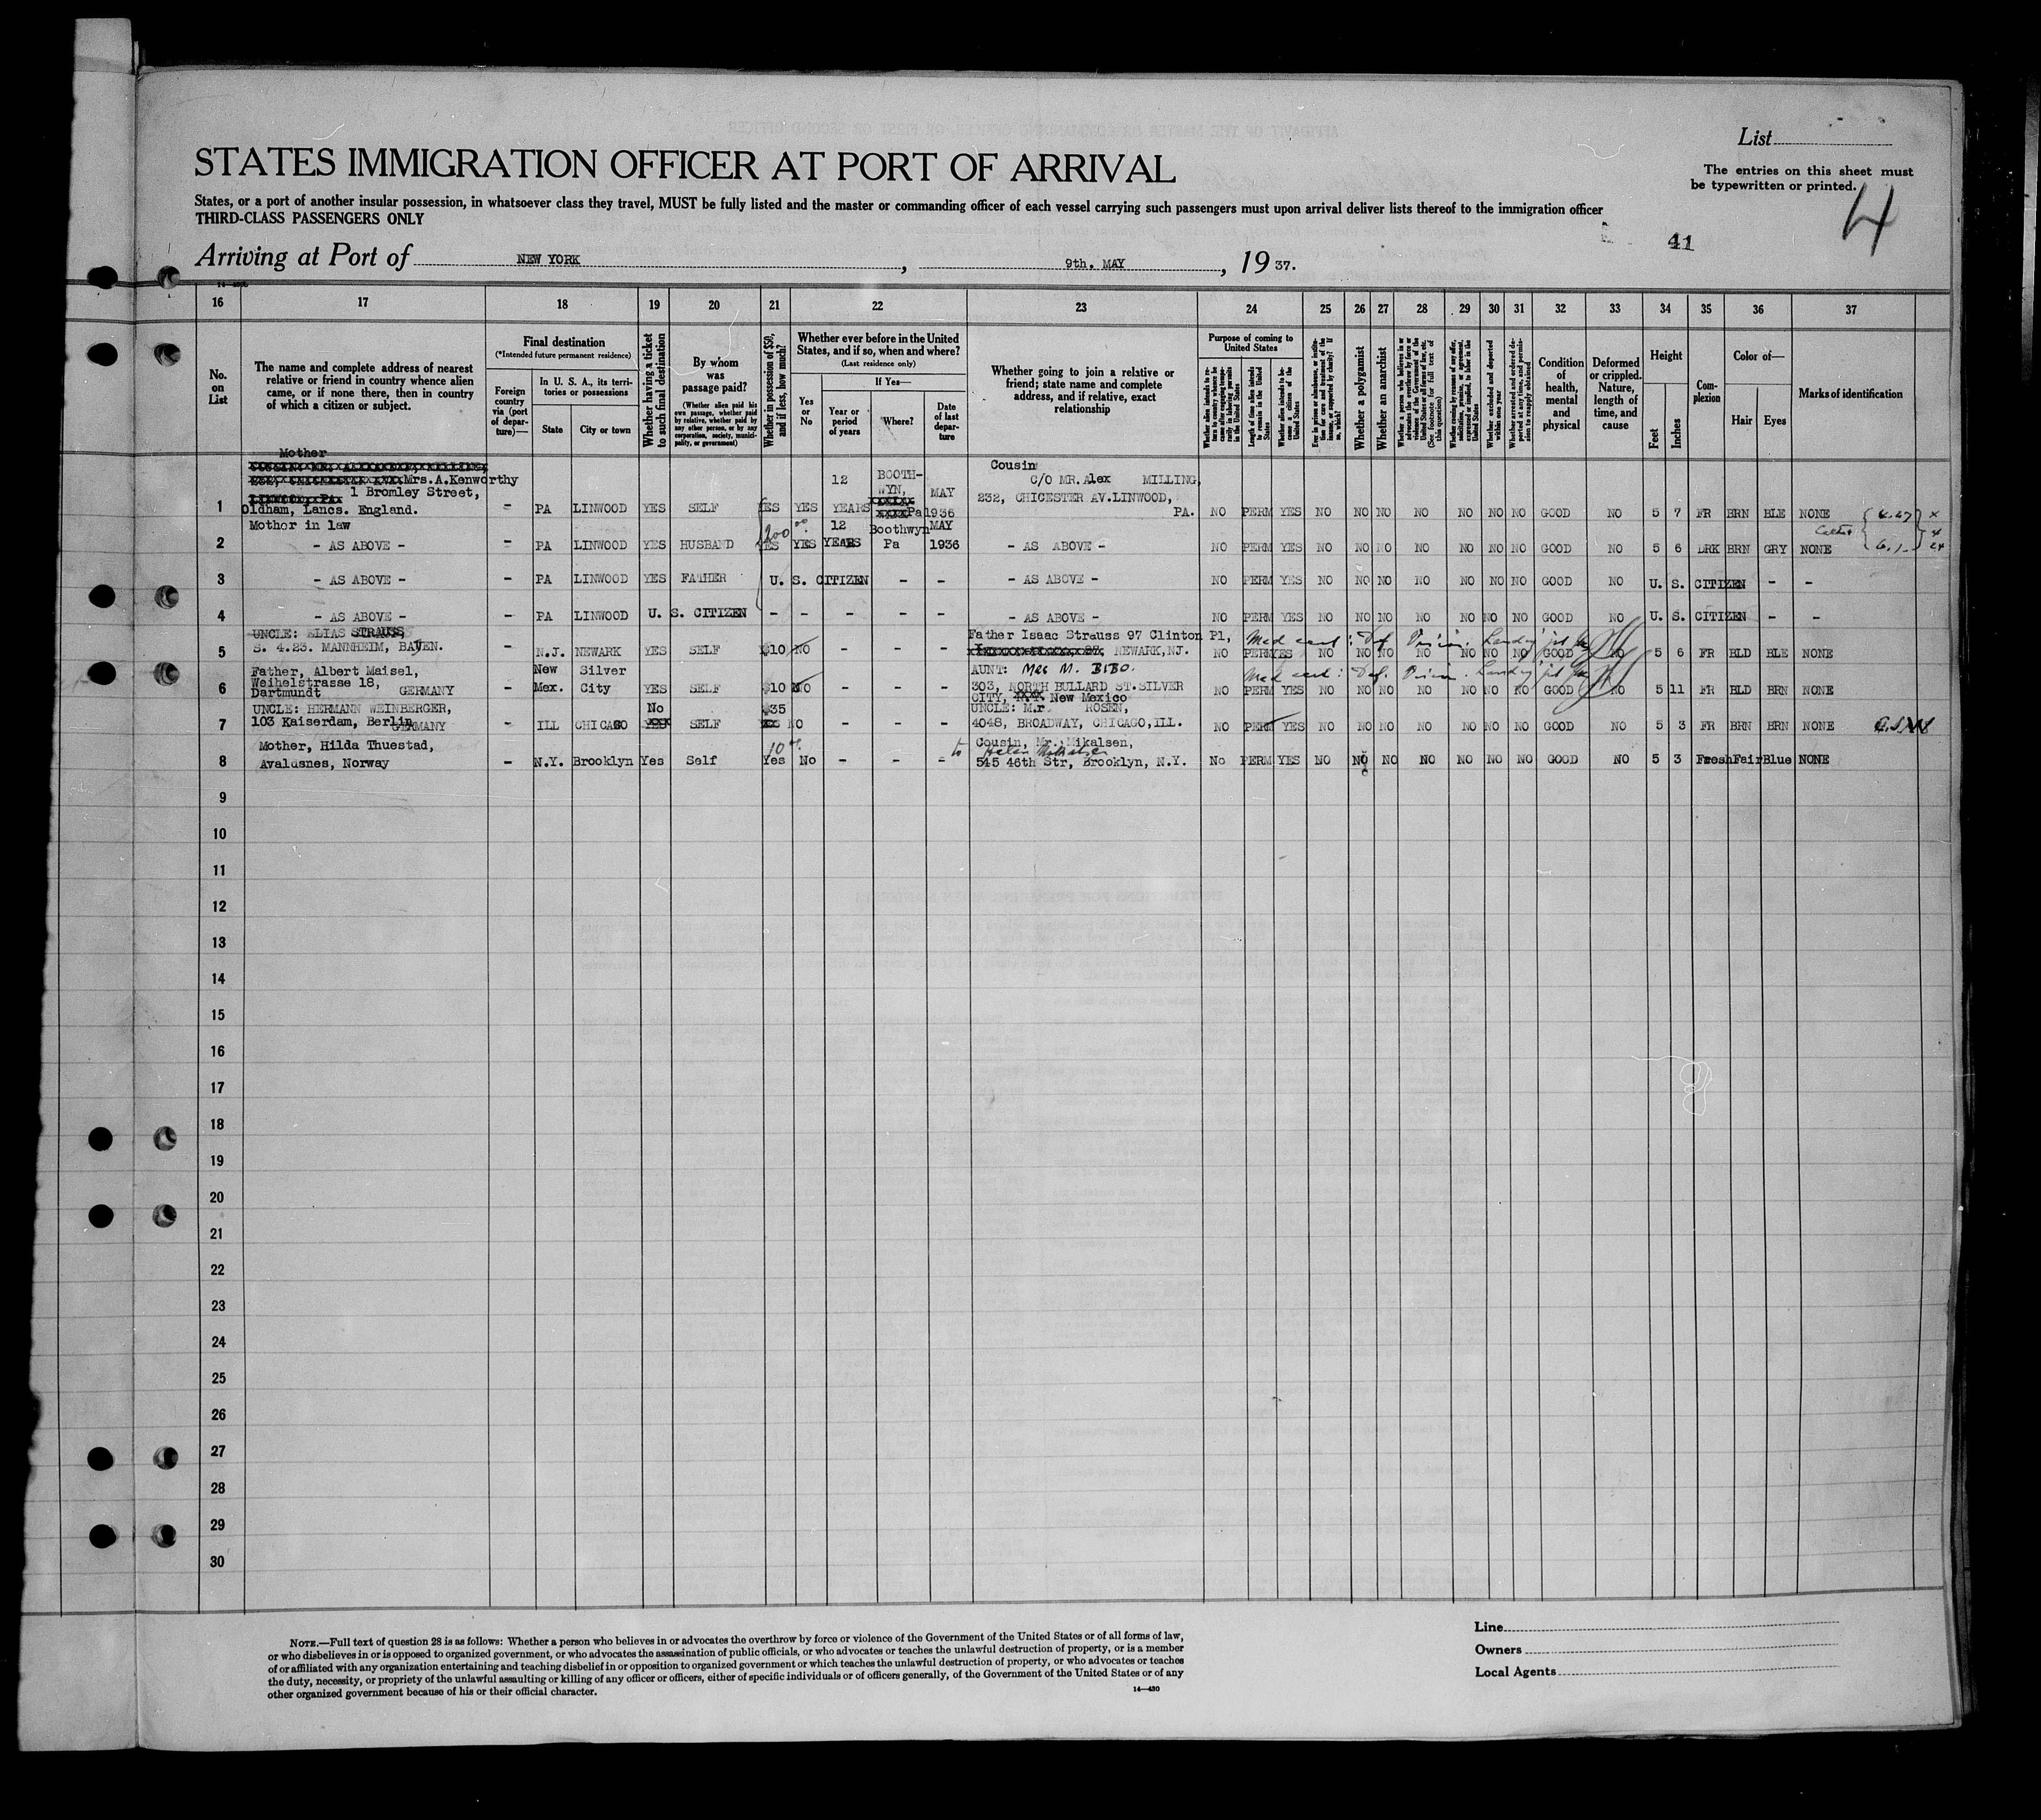 List
The entries on this sheet must
be typewritten or printed.
4
STATES IMMIGRATION OFFICER AT PORT OF ARRIVAL
States, or a port of another insular possession, in whatsoever class they travel, MUST be fully listed and the master or commanding officer of each vessel carrying such passengers must upon arrival deliver lists thereof to the immigration officer
THIRD-CLASS PASSENGERS ONLY
41
Arriving at Port of NEW YORK, 9th. MAY, 19 37.
16 17 18 19 20 21 22 23 24 25 26 27 28 29 30 31 32 33 34 35 36 37
No. on List
The name and complete address of nearest
relative or friend in country whence alien
came, or if none there, then in country
of which a citizen or subject.
Final destination
(*Intended future permanent residence)
Foreign country via (port of departure)—
In U. S. A., its territories or possessions
State
City or town
Whether having a ticket to such final destination
By whom was passage paid?
(Whether alien paid his own passage, whether paid by relative, whether paid by any other person, or by any corporation, society, municipality, or government)
Whether in possession of $50, and if less, how much?
Whether ever before in the United
States, and if so, when and where?
(Last residence only)
If Yes—
Yes or No
Year or period of years
Where?
Date of last departure
Whether going to join a relative or
friend; state name and complete
address, and if relative, exact
relationship
Purpose of coming to United States
Length of time alien intends to remain in the United States
Whether alien intends to become a citizen of the United States
Whether a polygamist
Whether an anarchist
Whether excluded and deported within one year
Condition of health, mental and physical
Deformed or crippled. Nature, length of time, and cause
Height
Feet
Inches
Complexion
Color of—
Hair
Eyes
Marks of identification
Mother
Mrs.A.Kenworthy
1 Bromley Street,
Oldham, Lancs. England.
1 – PA LINWOOD YES SELF YES YES 12 YEARS BOOTH-WYN, Pa MAY 1936
Cousin
C/O MR. Alex MILLING,
232, CHICESTER AV.LINWOOD,
PA. NO PERM YES NO NO NO NO NO NO NO GOOD NO 5 7 FR BRN BLE NONE
Mother in law
2 - AS ABOVE - – PA LINWOOD YES HUSBAND YES YES 12 YEARS Boothwyn Pa MAY 1936 - AS ABOVE - NO PERM YES NO NO NO NO NO NO NO GOOD NO 5 6 DRK BRN GRY NONE
200
3 - AS ABOVE - – PA LINWOOD YES FATHER U. S. CITIZEN – – - AS ABOVE - NO PERM YES NO NO NO NO NO NO NO GOOD NO U. S. CITIZEN – –
4 - AS ABOVE - – PA LINWOOD U. S. CITIZEN – – – – – - AS ABOVE - NO PERM YES NO NO NO NO NO NO NO GOOD NO U. S. CITIZEN – –
UNCLE: ELIAS STRAUSS,
S. 4.23. MANNHEIM, BAYEN.
5 – N.J. NEWARK YES SELF $10 NO – – –
Father Isaac Strauss 97 Clinton Pl,
NEWARK,NJ. NO PERM YES NO NO NO NO NO NO NO GOOD NO 5 6 FR BLD BLE NONE
Father, Albert Maisel,
Weihelstrasse 18,
Dartmundt GERMANY
6 – New Mex. Silver City YES SELF $10 NO – – –
AUNT: Mrs M. BIBO.
303, NORTH BULLARD ST.SILVER
CITY, New Mexico
NO PERM YES NO NO NO NO NO NO NO GOOD NO 5 11 FR BLD BRN NONE
UNCLE: HERMANN WEINBERGER,
103 Kaiserdam, Berlin GERMANY
7 – ILL CHICAGO No SELF $35 NO – – –
UNCLE: Mr ROSEN,
4048, BROADWAY, CHICAGO,ILL.
NO PERM YES NO NO NO NO NO NO NO GOOD NO 5 3 FR BRN BRN NONE
Mother, Hilda Thuestad,
Avalasnes, Norway
8 – N.Y. Brooklyn Yes Self Yes No – – –
Cousin, Mr. Mikalsen,
Helen Mikalsen
545 46th Str, Brooklyn, N.Y.
No PERM YES NO NO NO NO NO NO NO GOOD NO 5 3 Fresh Fair Blue NONE
9
10
11
12
13
14
15
16
17
18
19
20
21
22
23
24
25
26
27
28
29
30
NOTE.—Full text of question 28 is as follows: Whether a person who believes in or advocates the overthrow by force or violence of the Government of the United States or of all forms of law,
or who disbelieves in or is opposed to organized government, or who advocates the assassination of public officials, or who advocates or teaches the unlawful destruction of property, or is a member
of or affiliated with any organization entertaining and teaching disbelief in or opposition to organized government or which teaches the unlawful destruction of property, or who advocates or teaches
the duty, necessity, or propriety of the unlawful assaulting or killing of any officer or officers, either of specific individuals or of officers generally, of the Government of the United States or of any
other organized government because of his or their official character.
14—430
Line
Owners
Local Agents